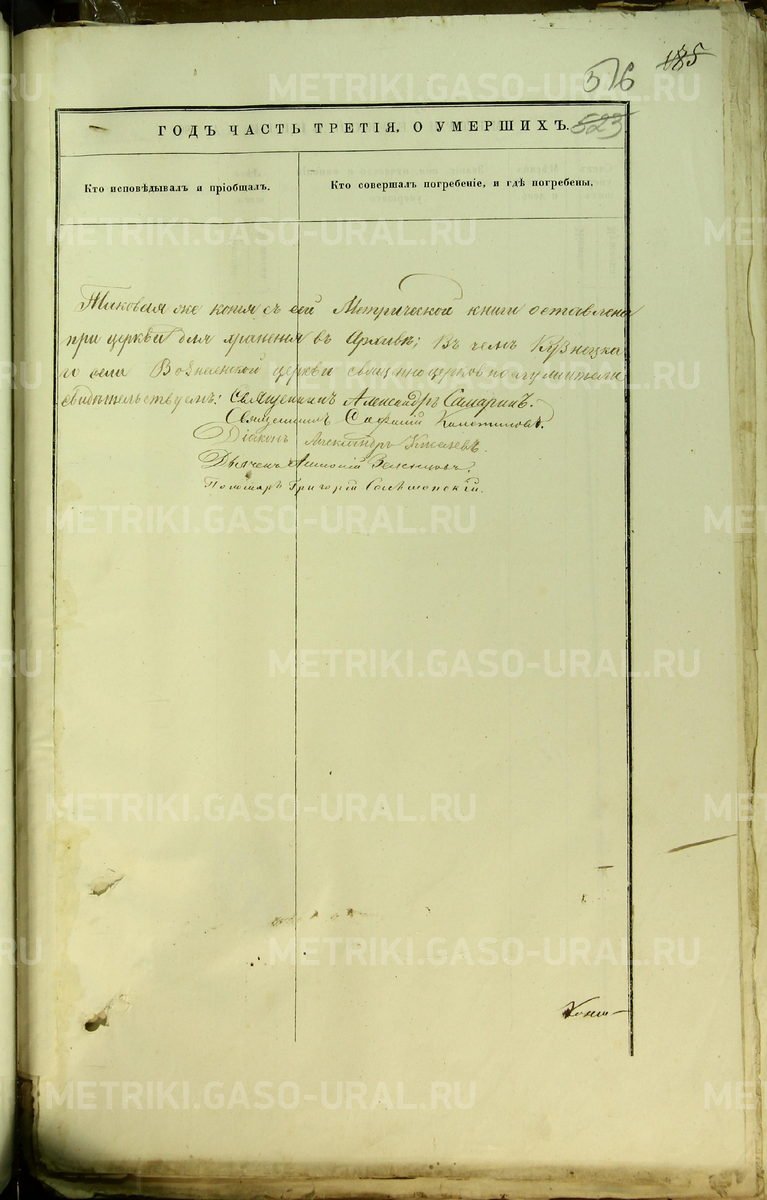 185
516
523
ГОДЪ ЧАСТЬ ТРЕТІЯ. О УМЕРШИХЪ.
Кто исповѣдывалъ и пріобщалъ.
Кто совершалъ погребеніе, и гдѣ погребены.
Таковая же копія съ сей Метрической книги оставлена
при церкви для храненія въ Архивѣ; Въ чемъ Кузнецка-
го села Вознесенской церкви священноцерковнослужители
свидѣтельствуемъ: Священникъ Александръ Самаринъ.
Священникъ
Діаконъ Александръ
Дьячекъ Антоній
Пономарь Григорій
METRIKI.GASO-URAL.RU